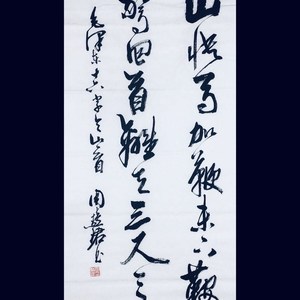 山快马加鞭未下鞍
驚回首離天三尺三
毛澤东十六字令山一首 周慧珺书